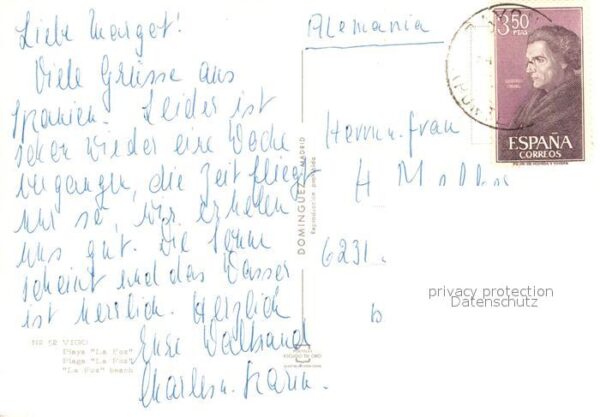 Liebe Margot!
Viele Grüsse aus
Spanien. Leider ist
schon wieder eine Woche
vergangen, die Zeit fliegt
nur so, wir erholen
uns gut. Die Sonne
scheint und das Wasser
ist herrlich. Herzlich
Eure Waltraud
Charles u. Karin.
Nº 52 VIGO
Playa "La Foz"
Plage "La Foz"
"La Foz" beach
DOMINGUEZ MADRID
Reproduccion prohibida
ESCUDO DE ORO
Alemania
Herrn u. Frau
H
6231.
b
privacy protection
Datenschutz
3,50
PTAS
ESPAÑA
CORREOS